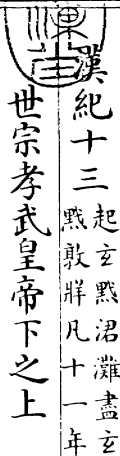 漢紀十三
起玄黓涒灘盡玄
黓敦牂凡十一年
世宗孝武皇帝下之上